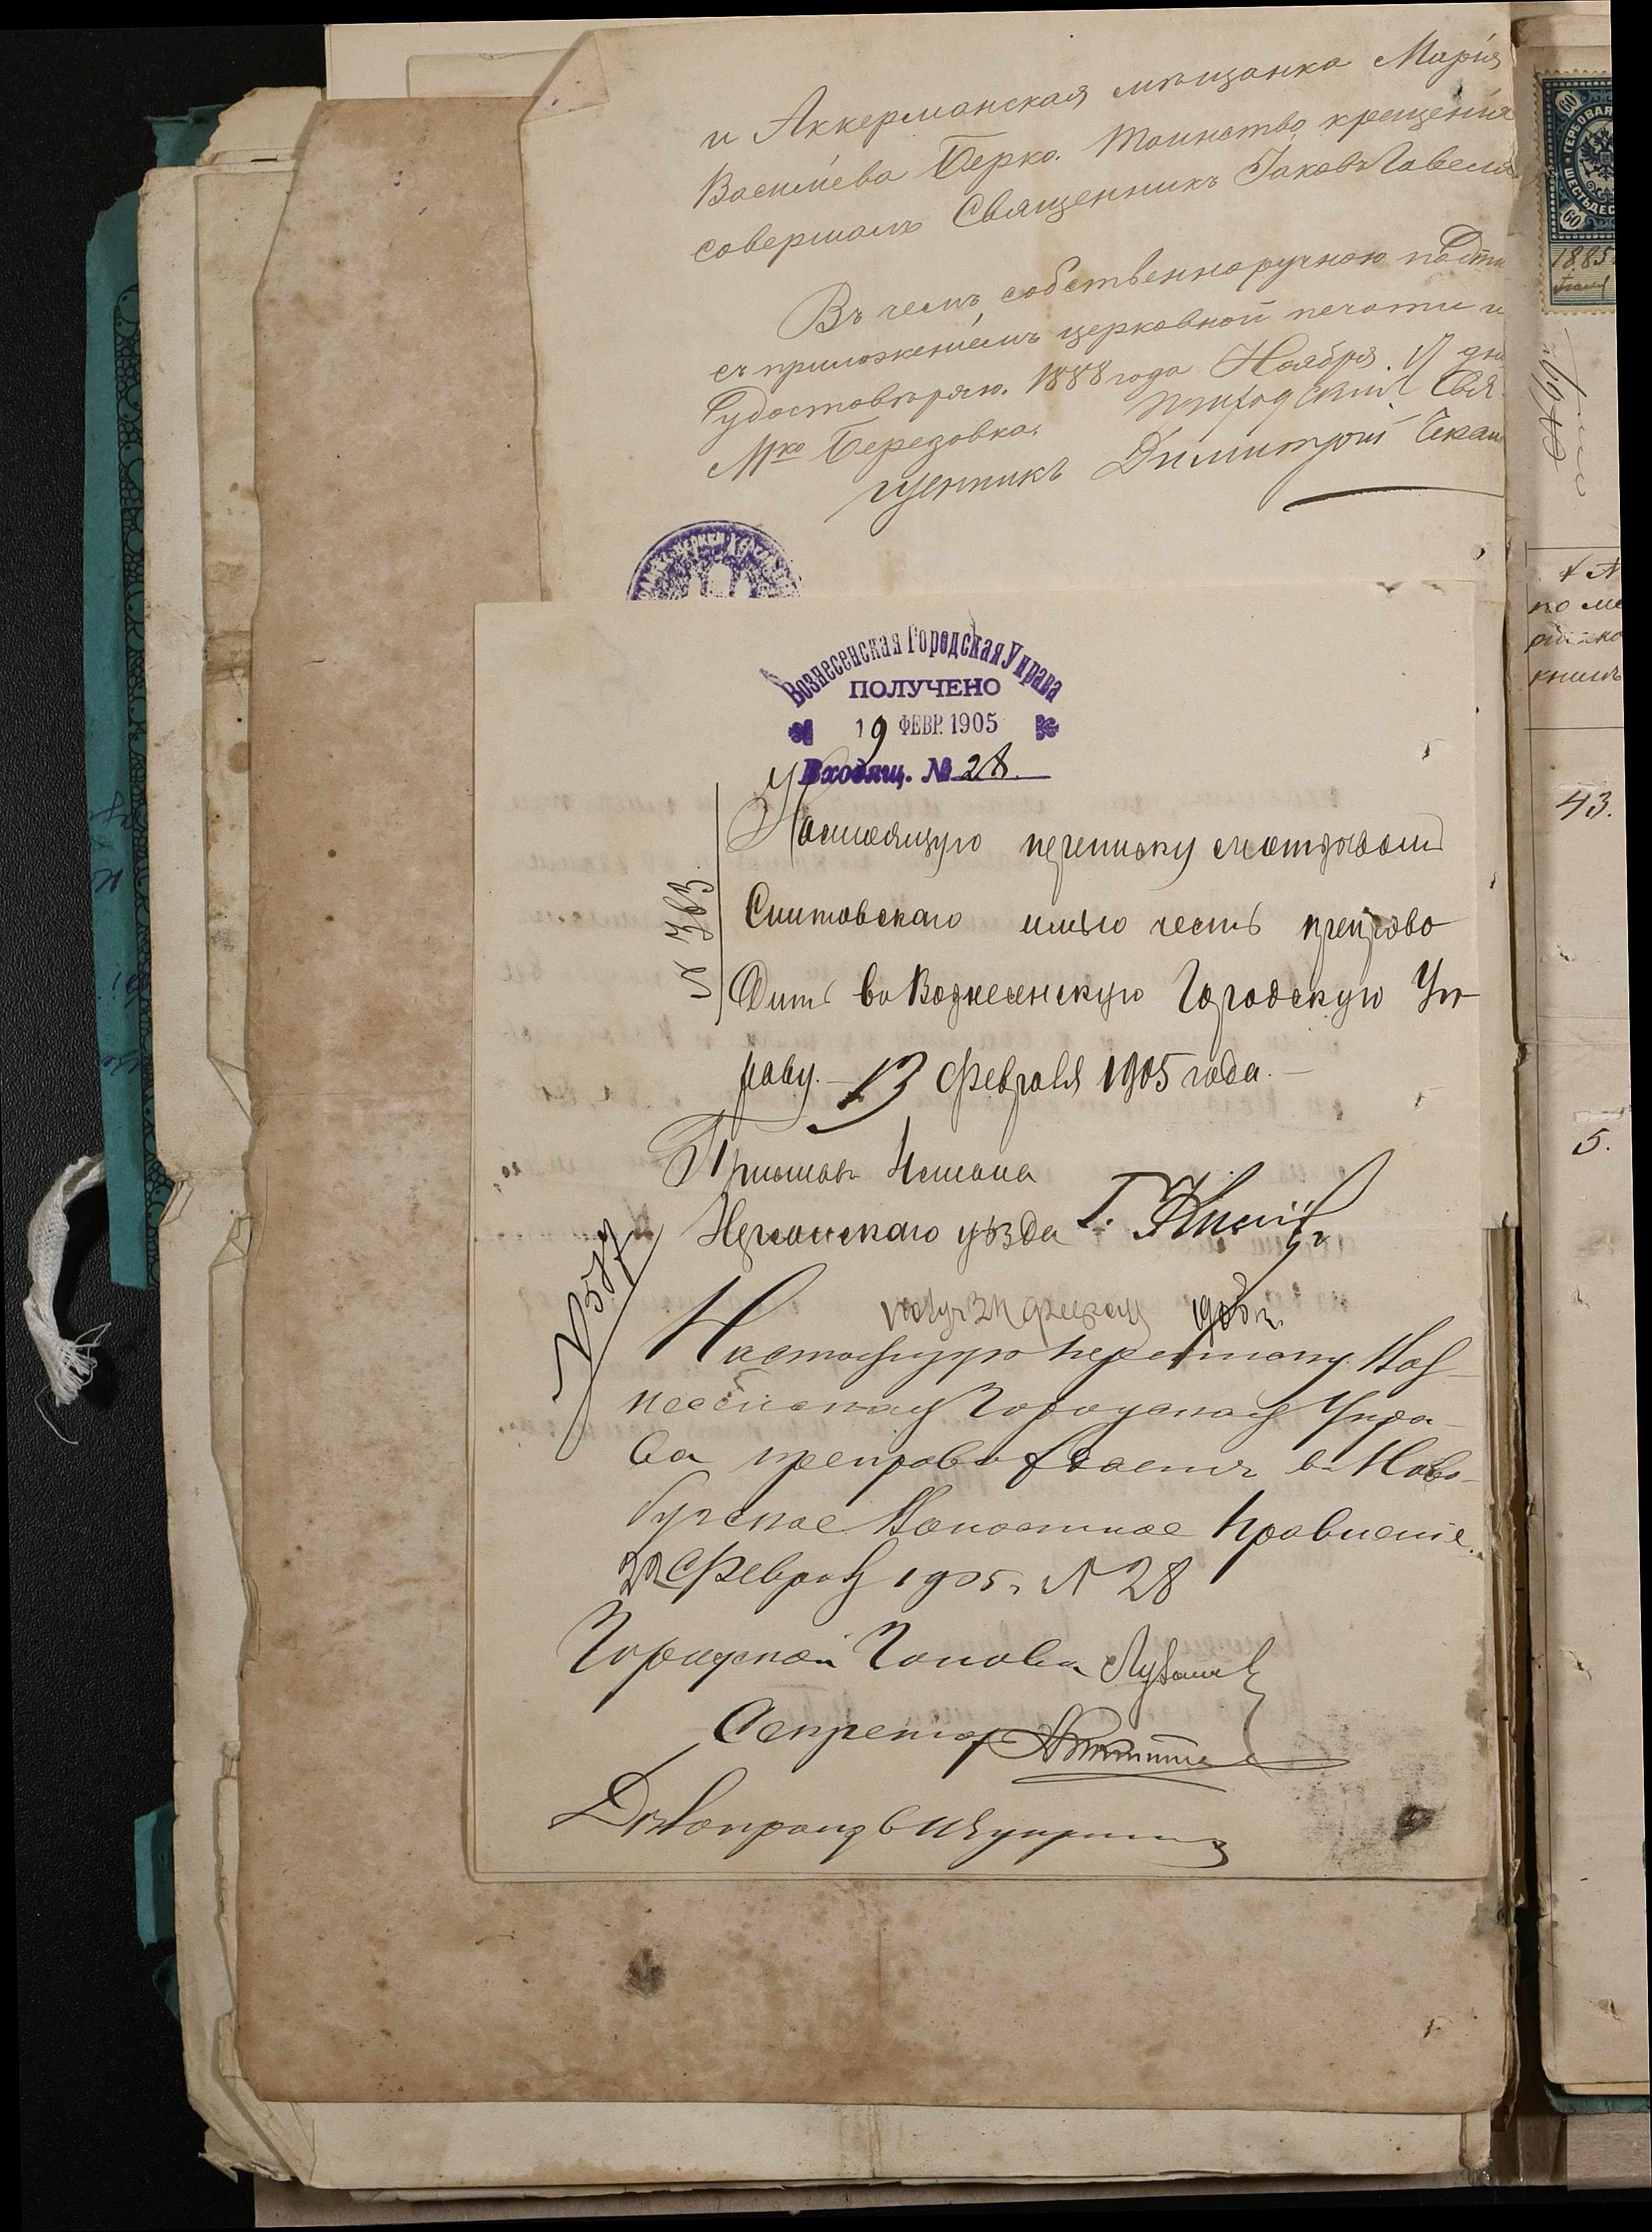 и Аккерманская мѣщанка Марія
Васильева Берко. Таинство крещенія
совершалъ Священникъ Іаковъ
Въ чемъ собственноручною
съ приложеніемъ церковной печати и
удостовѣряю. 1888 года Ноября 17 дня
Мко Березовка. Приходскій Свя
щенникъ Димитрій
Вознесенская Городская Управа
ПОЛУЧЕНО
19 ФЕВР. 1905
Входящ. № 28
Настоящую переписку
имѣю честь препрово
дить въ Вознесенскую Городскую Уп
раву. 13 Февраля 1905 года.
№ 363
Приставъ 4 стана
Херсонскаго уѣзда Г.
№ 587
1905 г.
Настоящую переписку Воз
несенская Городская Упра
ва препровождаетъ въ Ново
бугское Волостное Правленіе.
22 Февраля 1905 г. № 28
Городской Голова
Секретарь
Дѣлопроизв
60
ГЕРБОВАЯ
60
1885
43.
5.